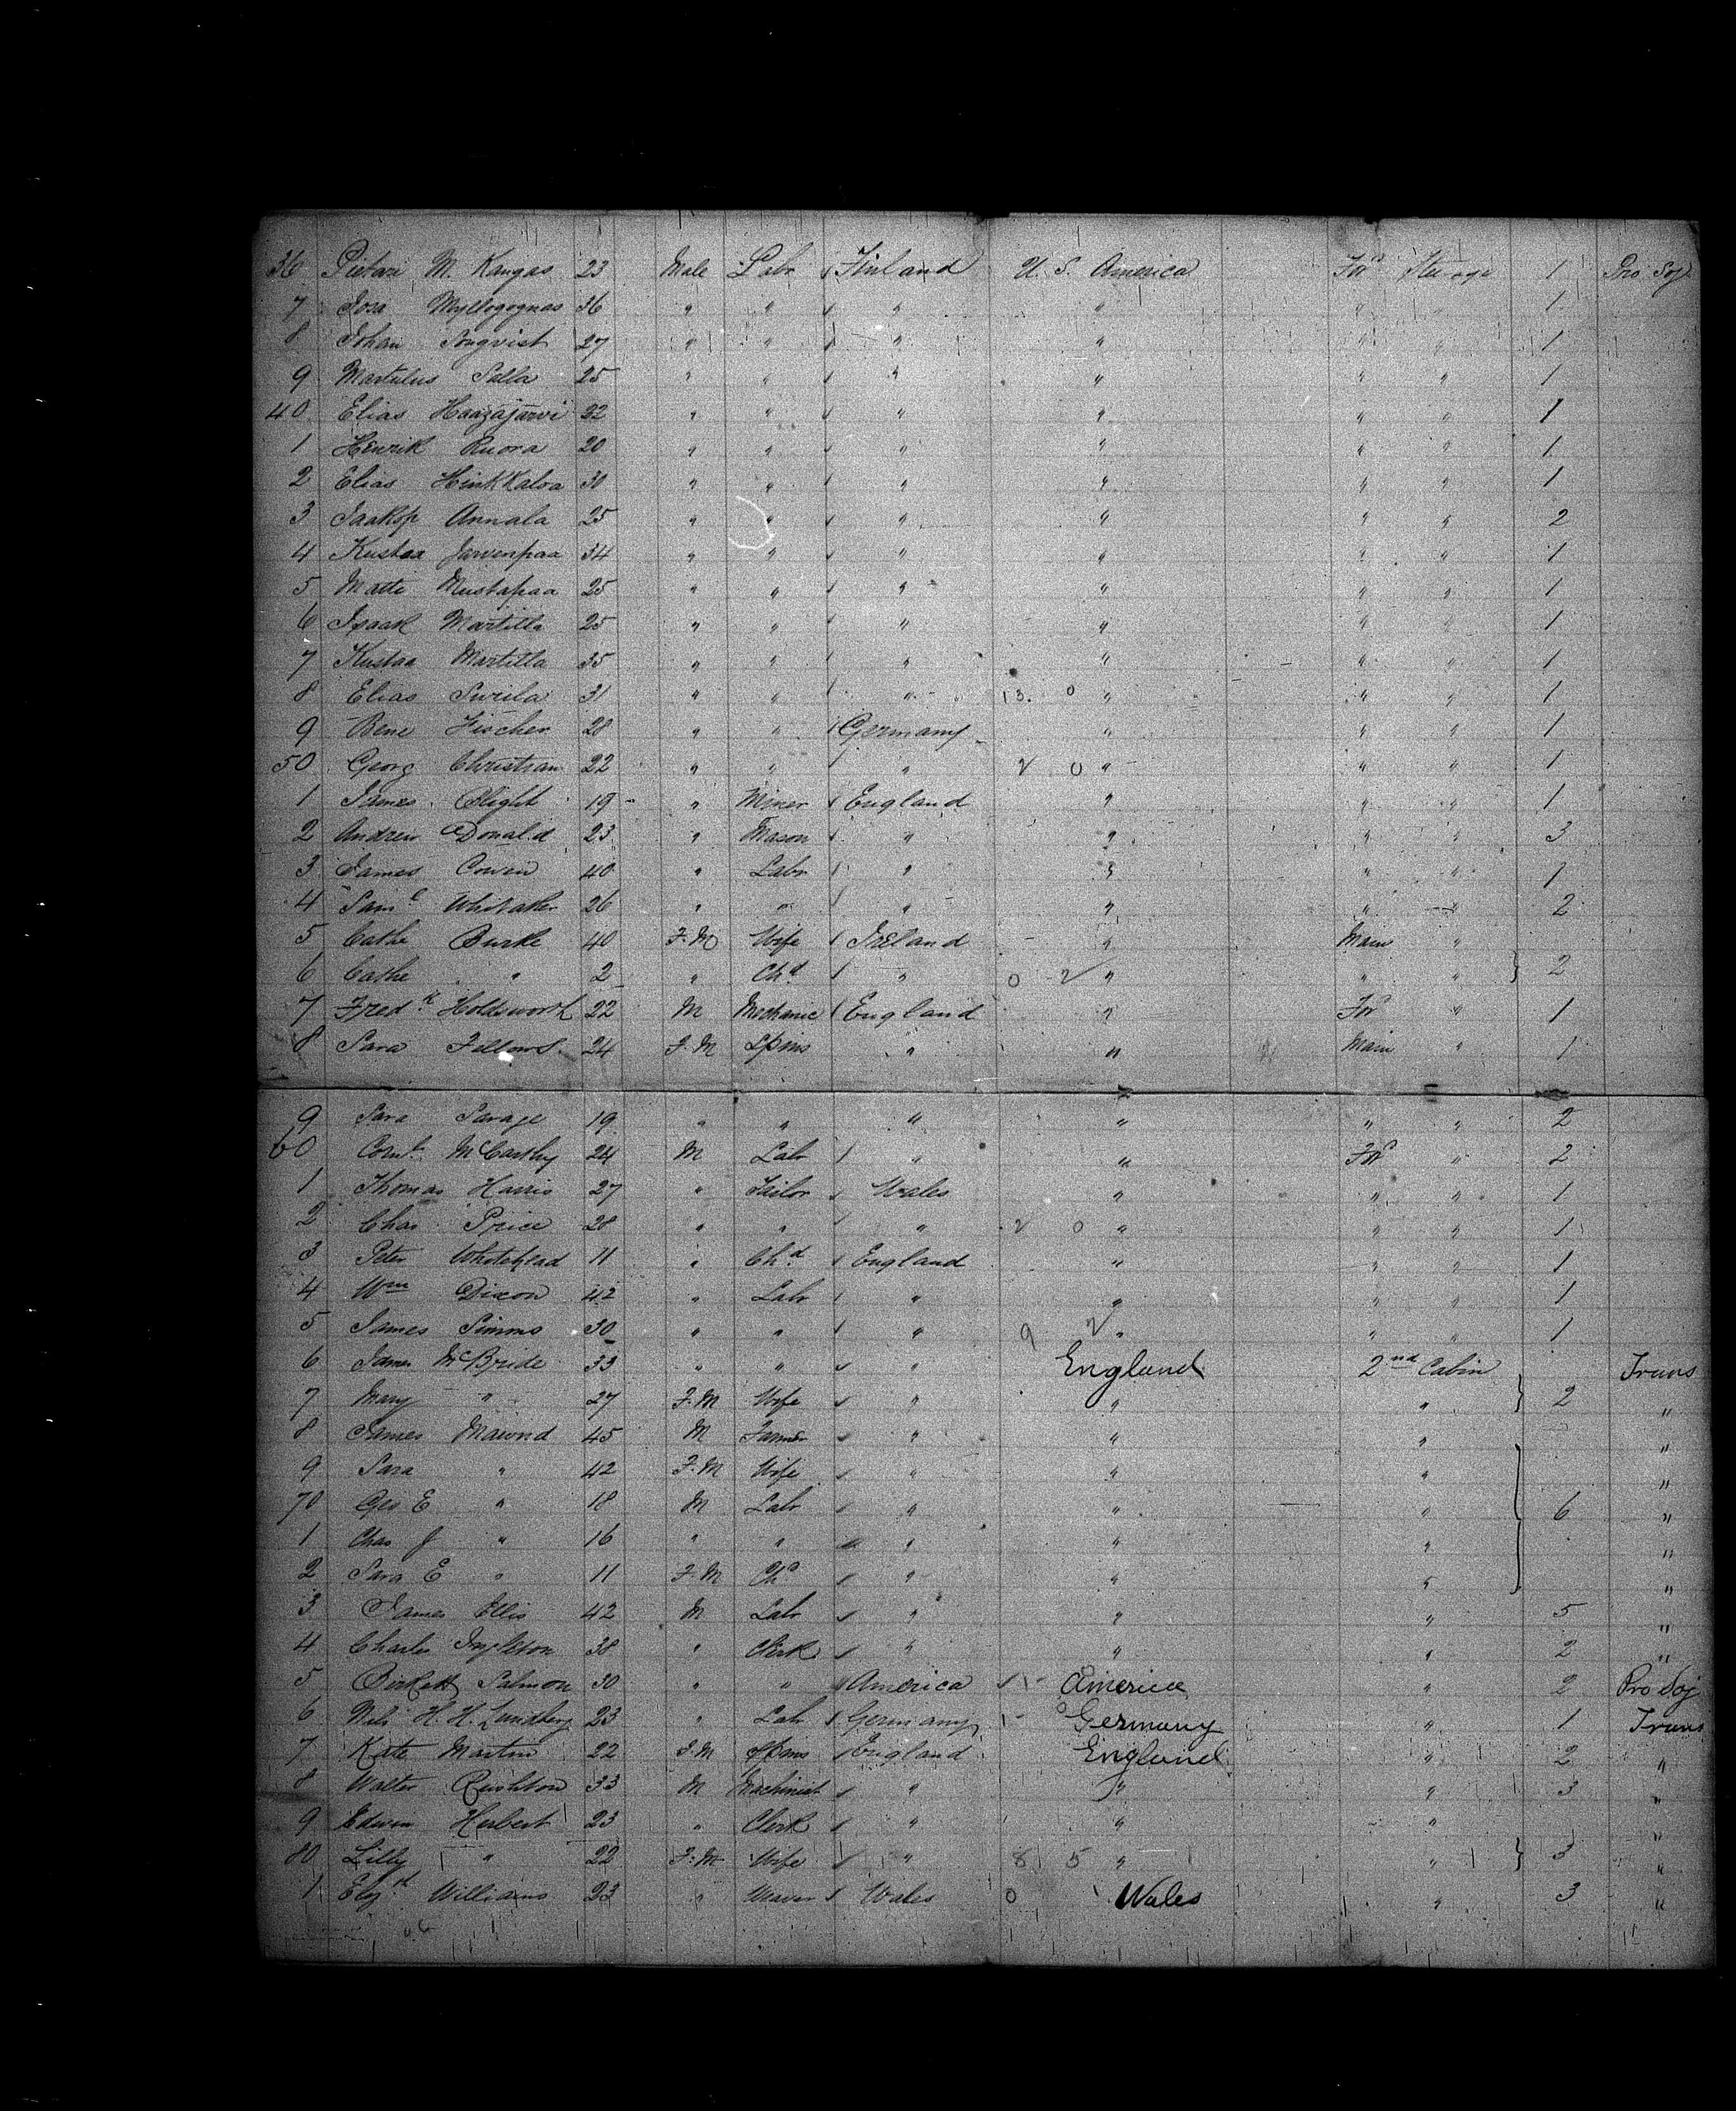 36 Pietari M. Kangas 23 Male Labr Finland U. S. America For^d Steerage 1 Pro Soj
7 Josa Myllogognas 36 " " " " " " 1
8 Johan Songvist 27 " " " " " " 1
9 Martulus Salla 25 " " " " " " 1
40 Elias Haazajarvi 22 " " " " " " 1
1 Henrik Ruona 20 " " " " " " 1
2 Elias HinkKaloa 30 " " " " " " 1
3 Jaakop Annala 25 " " " " " " 2
4 Kustaa Jarvenpaa 34 " " " " " " 1
5 Matti Mustapaa 25 " " " " " " 1
6 Isaak Martilla 25 " " " " " " 1
7 Kustaa Martilla 35 " " " " " " 1
8 Elias Swrila 31 " " " 13. 0 " " " 1
9 Bene Fischer 28 " " Germany " " " 1
50 Georg Christian 22 " " " 2 0 " " " 1
1 James Blight 19 " Miner England " " " 1
2 Andrew Donald 23 " Mason " " " " 3
3 James Cowen 40 " Labr " " " " 1
4 Sam^l Whitaker 26 " " " " " " 2
5 Cathe Burke 40 F.M Wife Ireland " Main "
6 Cathe " 2 " Ch^d " 0 2 " " " } 2
7 Fred^k Holdsworth 22 M Mechanic England " For^d " 1
8 Sara Fellows 24 F.M Spins " " Main " 1
9 Sara Savage 19 " " " " " " 2
60 Corn^l McCarthy 24 M Labr " " For^d " 2
1 Thomas Harris 27 " Tailor Wales " " " 1
2 Chas Price 28 " " " 2 0 " " " 1
3 Peter Whitehead 11 " Ch^d England " " " 1
4 Wm Dixon 42 " Labr " " " " 1
5 James Simms 30 " " " 9 2 " " " 1
6 James McBride 33 " " " England 2nd Cabin Trans
7 Mary " 27 F.M Wife " " " } 2 "
8 James Maiond 45 M Farmer " " " "
9 Sara " 42 F.M Wife " " " "
70 Geo E " 18 M Labr " " " } 6 "
1 Chas J " 16 " " " " " "
2 Sara E " 11 F.M Ch^d " " " "
3 James Ellis 42 M Labr " " " 5 "
4 Charles Ingleton 38 " Clerk " " " 2 "
5 Birkett Salmon 30 " " America 1 - America " 2 Pro Soj
6 Nils H. H. Lundberg 23 " Labr Germany 1 - Germany " 1 Trans
7 Kate Martin 22 F.M Spins England England " 2 "
8 Walter Rushton 33 M Machinist " " " 3 "
9 Edwin Herbert 23 " Clerk " " " "
80 Lilly " 22 F.M Wife " 8 5 " " } 3 "
1 Eliz^th Williams 23 " Weaver Wales 0 Wales " 3 "